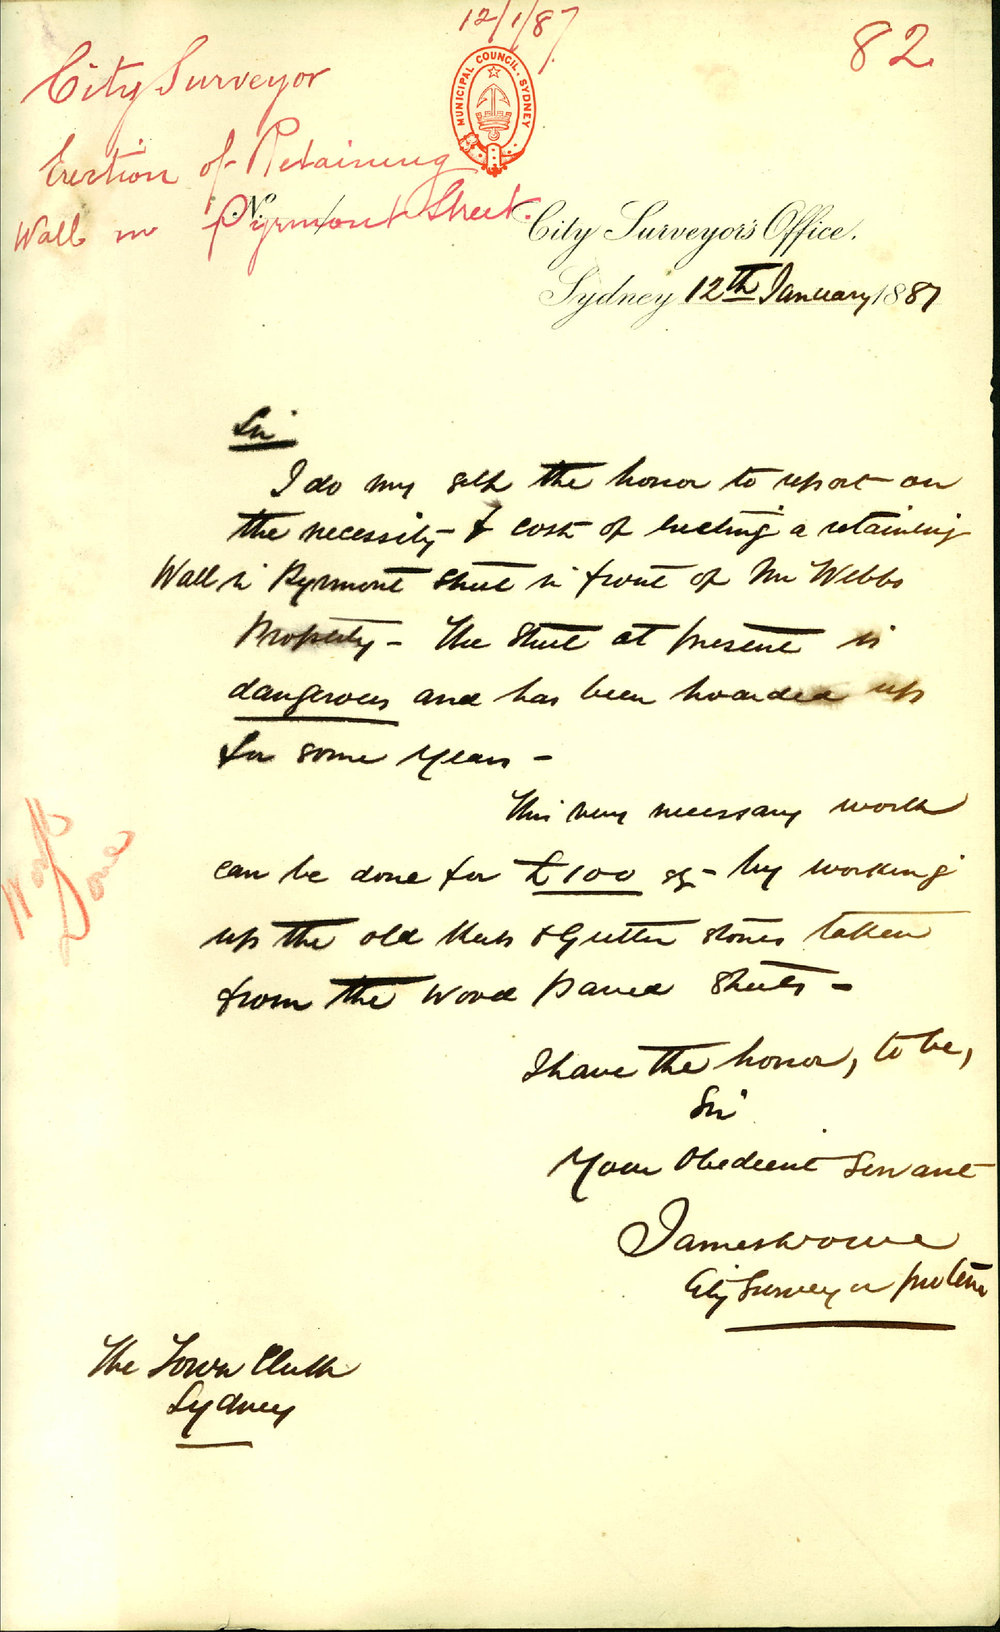 12/1/87
82
City Surveyor
MUNICIPAL COUNCIL. SYDNEY
Erection of Retaining
Wall in Pyrmont Street.
No.
City Surveyor's Office.
Sydney 12th January 1887
Sir
I do my self the honor to report on
the necessity & cost of erecting a retaining
Wall in Pyrmont Street in front of Mr Webbs
Property - The Street at present is
dangerous and has been hoarded up
for some years -
This very necessary work
can be done for £100 by working
up the old Kerb & Gutter stones taken
from the Wood paved Streets -
Work
Done
I have the honor, to be,
Sir
Your Obedient Servant
James
City Surveyor pro tem
The Town Clerk
Sydney